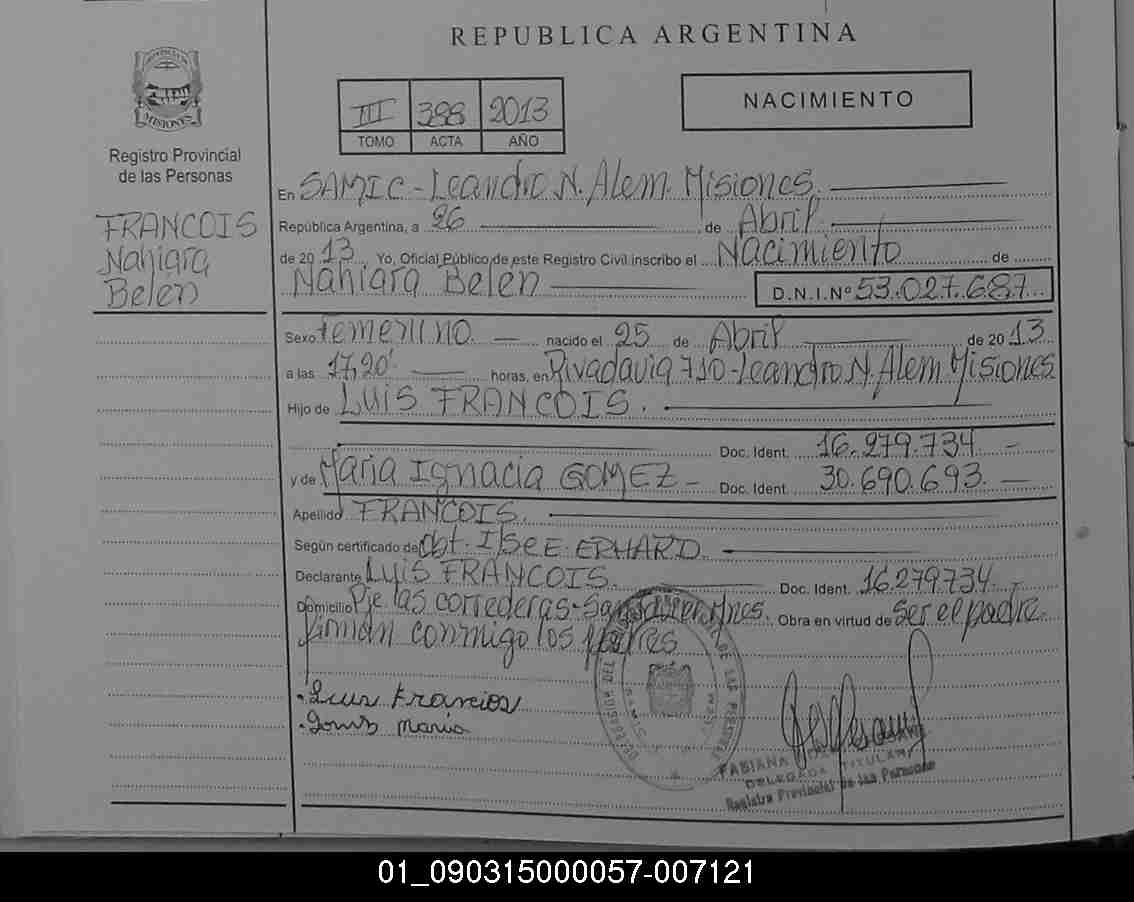 REPUBLICA ARGENTINA
PROVINCIA DE
MISIONES
Registro Provincial
de las Personas
FRANCOIS
Nahiara
Belén
III 398 2013
TOMO ACTA AÑO
NACIMIENTO
En SAMIC - Leandro N. Alem. Misiones.
República Argentina, a 26 de Abril
de 2013 Yo, Oficial Público de este Registro Civil inscribo el Nacimiento de
Nahiara Belén D.N.I.Nº 53.027.687
Sexo femenino nacido el 25 de Abril de 2013
a las 17,20' horas, en Rivadavia 710 - Leandro N. Alem Misiones
Hijo de LUIS FRANCOIS.
Doc. Ident. 16.279.734
y de Maria Ignacia GOMEZ - Doc. Ident. 30.690.693
Apellido FRANCOIS.
Según certificado de Obt. Ilse E. ERHARD
Declarante LUIS FRANCOIS. Doc. Ident. 16.279734
Domicilio Pje las correderas - Mnes. Obra en virtud de ser el padre.
Firman conmigo los padres
Luis Francios
Goms Maria
FABIANA
DELEGADA TITULAR
Registro Provincial de las Personas
01_090315000057-007121